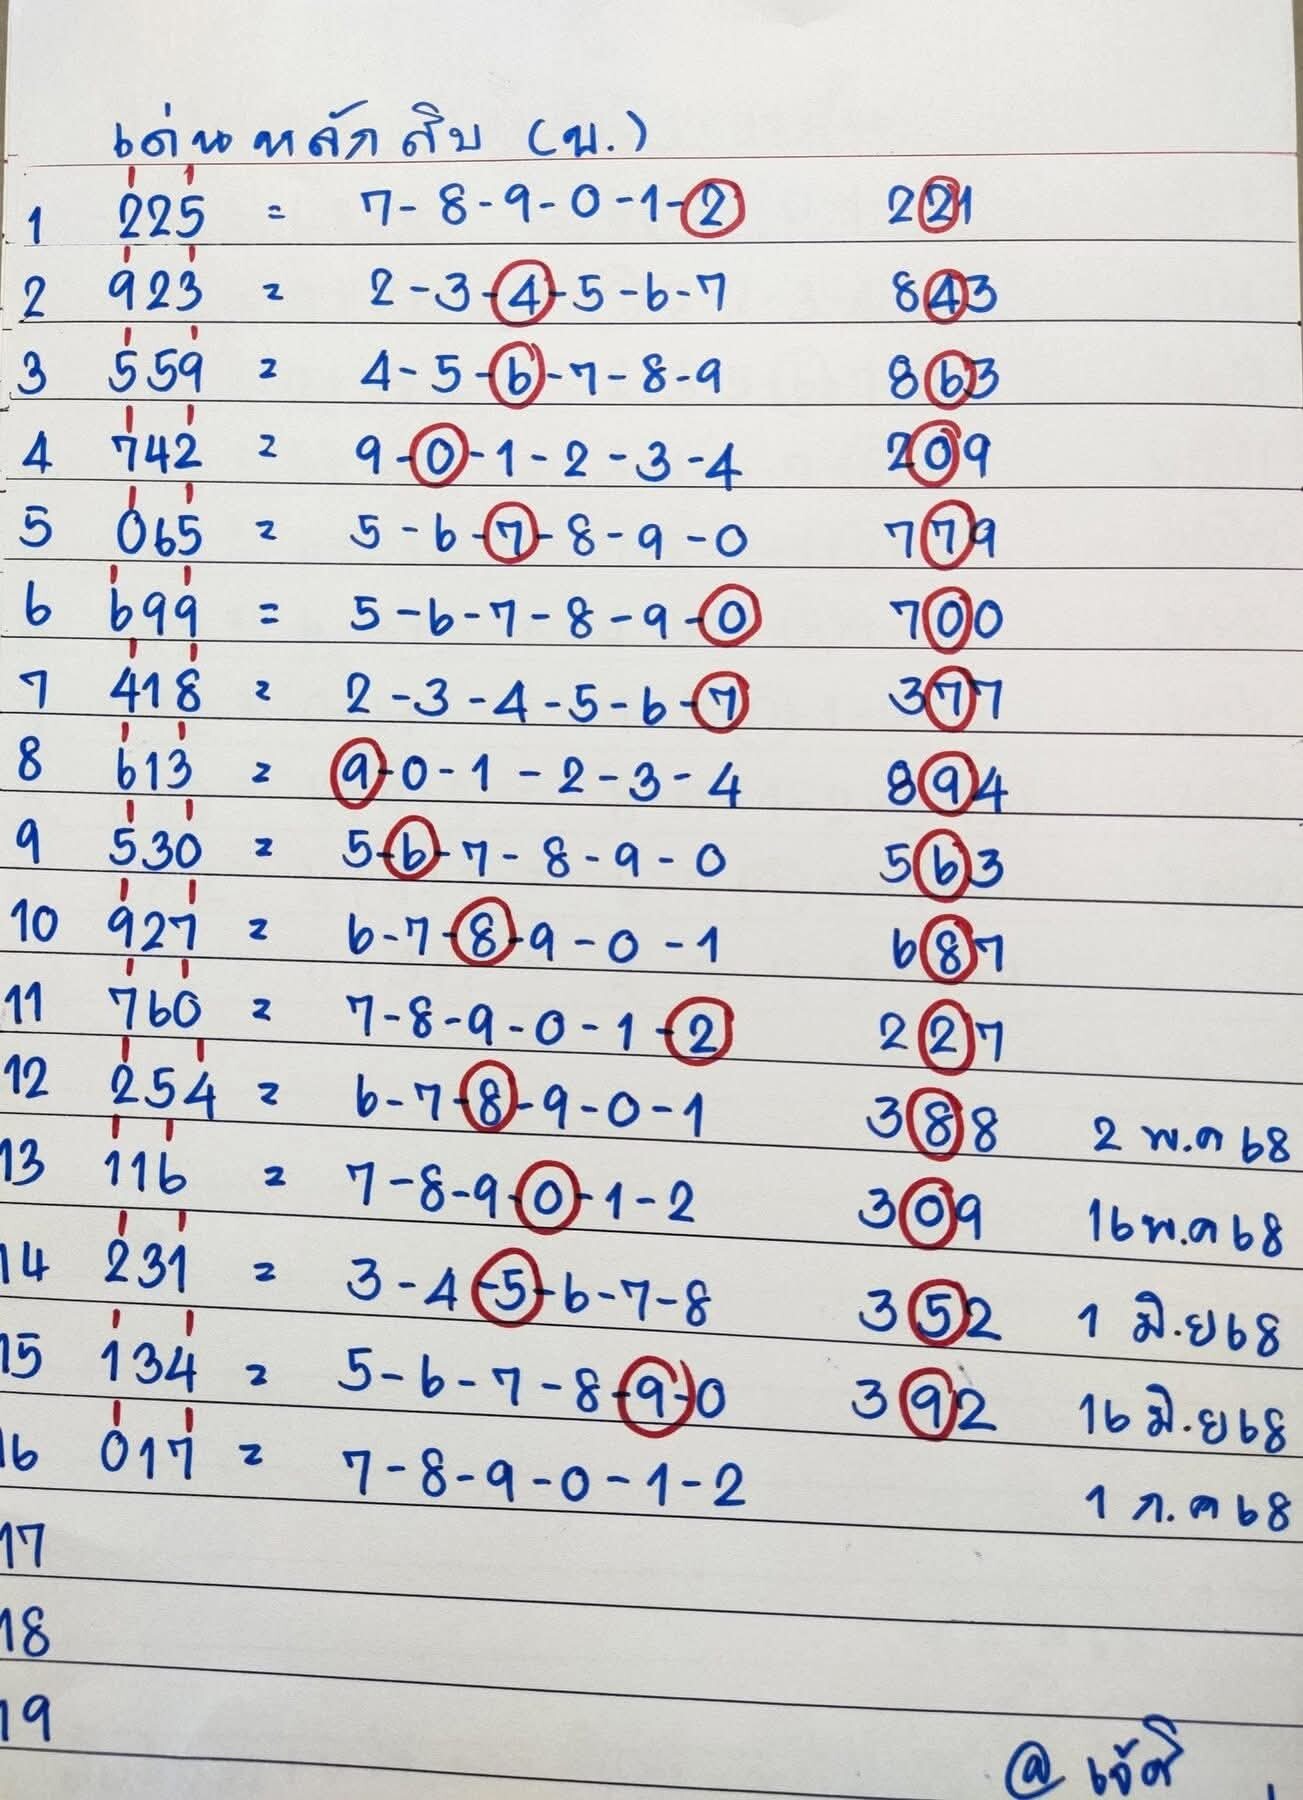 เด่นหลักสิบ (บ.)
1 225 = 7-8-9-0-1-2 221
2 923 = 2-3-4-5-6-7 843
3 559 = 4-5-6-7-8-9 863
4 742 = 9-0-1-2-3-4 209
5 065 = 5-6-7-8-9-0 779
6 699 = 5-6-7-8-9-0 700
7 418 = 2-3-4-5-6-7 377
8 613 = 9-0-1-2-3-4 894
9 530 = 5-6-7-8-9-0 563
10 927 = 6-7-8-9-0-1 687
11 760 = 7-8-9-0-1-2 227
12 254 = 6-7-8-9-0-1 388 2 พ.ค 68
13 116 = 7-8-9-0-1-2 309 16 พ.ค 68
14 231 = 3-4-5-6-7-8 352 1 มิ.ย 68
15 134 = 5-6-7-8-9-0 392 16 มิ.ย 68
16 017 = 7-8-9-0-1-2 1 ก.ค 68
17
18
19
@เจ้ศรี